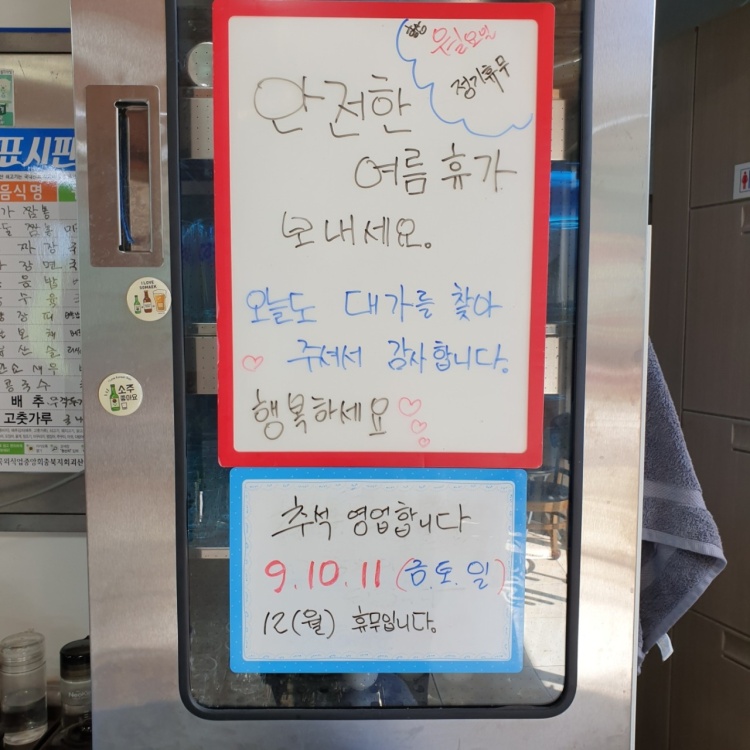 월요일
정기휴무
안전한
여름 휴가
보내세요.
오늘도 대가를 찾아
주셔서 감사합니다.
행복하세요
추석 영업합니다
9.10.11 (금.토.일)
12(월) 휴무입니다.
표시판
음식명
짬뽕
짜장
콩국수
배추
고춧가루
I LOVE
SOMAEK
소주
좋아요